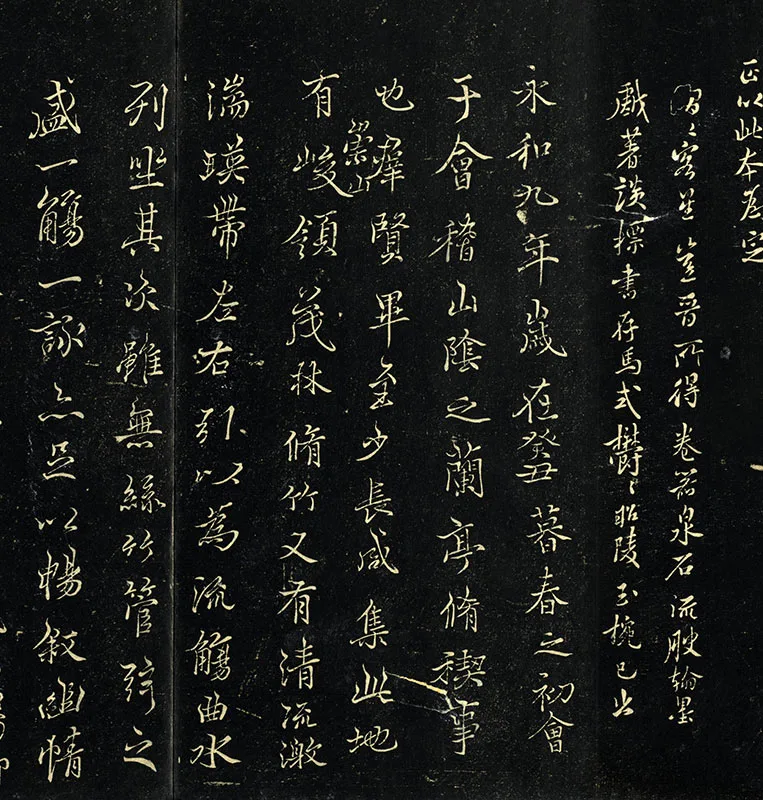 正以此本為定
熠〻客星豈晉所得養器泉石流腴翰墨
戲著談標書存馬式鬱〻昭陵玉椀已出
永和九年歲在癸丑暮春之初會
于會稽山陰之蘭亭脩稧事
也羣賢畢至少長咸集此地
有崇山峻領茂林脩竹又有清流激
湍暎帶左右引以為流觴曲水
列坐其次雖無絲竹管弦之
盛一觴一詠亦足以暢敘幽情